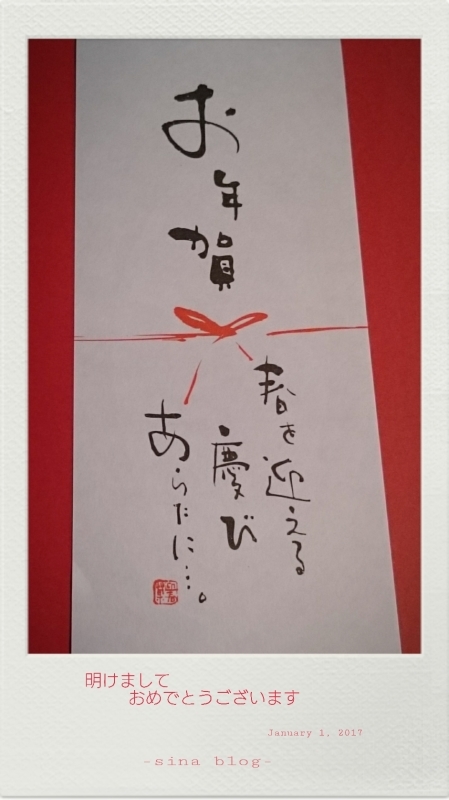 お年賀
春を迎える
慶び
あらたに…。
明けまして
おめでとうございます
January 1, 2017
-sina blog-